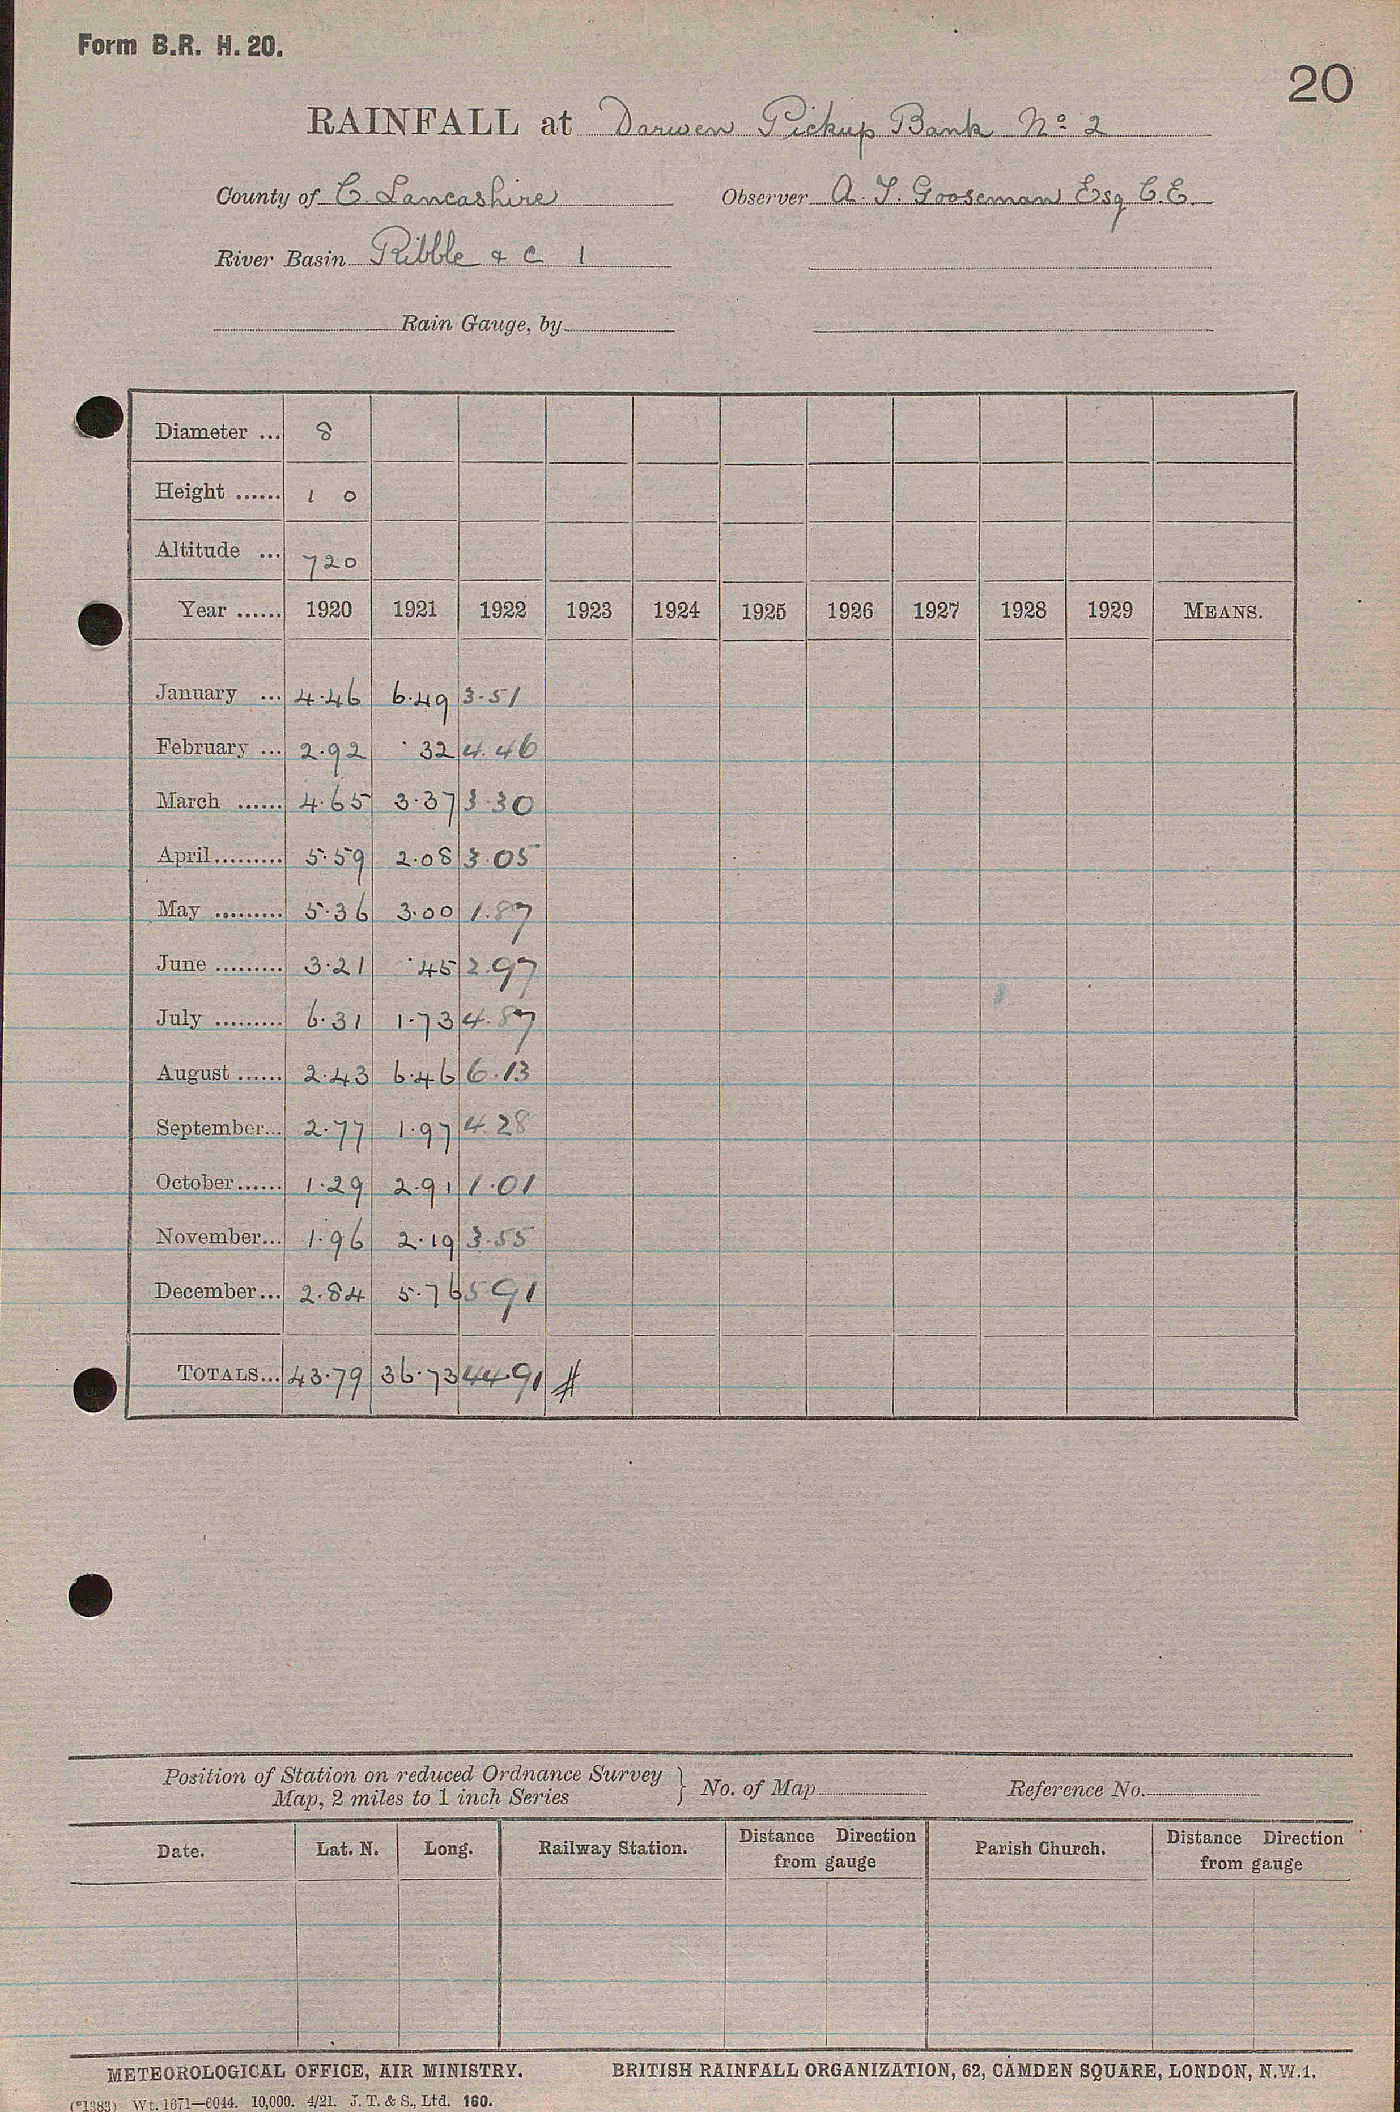 Form B.R. H. 20.
20
RAINFALL at Darwen Pickup Bank No. 2
County of C. Lancashire Observer A. T. Gooseman Esq C.E.
River Basin Ribble & C 1
Rain Gauge, by
Diameter ... 8
Height ...... 1 0
Altitude ... 720
Year ...... 1920 1921 1922 1923 1924 1925 1926 1927 1928 1929 MEANS.
January ... 4.46 6.49 3.51
February ... 2.92 .32 4.46
March ...... 4.65 3.37 3.30
April ......... 5.59 2.08 3.05
May ......... 5.36 3.00 1.87
June ......... 3.21 .45 2.97
July ......... 6.31 1.73 4.87
August ...... 2.43 6.46 6.13
September... 2.77 1.97 4.28
October...... 1.29 2.91 1.01
November... 1.96 2.19 3.55
December... 2.84 5.76 5 91
TOTALS... 43.79 36.73 44.91 #
Position of Station on reduced Ordnance Survey
Map, 2 miles to 1 inch Series } No. of Map Reference No.
Date. Lat. N. Long. Railway Station. Distance Direction from gauge Parish Church. Distance Direction from gauge
METEOROLOGICAL OFFICE, AIR MINISTRY. BRITISH RAINFALL ORGANIZATION, 62, CAMDEN SQUARE, LONDON, N.W.1.
(*1383) Wt. 1671—6044. 10,000. 4/21. J. T. & S., Ltd. 160.